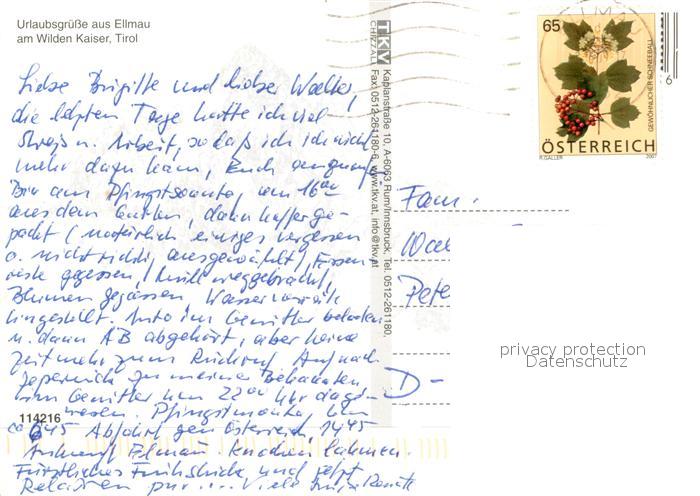 Urlaubsgrüße aus Ellmau
am Wilden Kaiser, Tirol
Liebe Brigitte und lieber Walter,
die letzten Tage hatte ich viel
Streß u. Arbeit, so daß ich nicht
mehr dazu kam, Euch
Bin am Pfingstsonntag, um 16⁰⁰
aus dem Garten, dann Koffer ge-
packt (natürlich einiges vergessen
o. nicht richtig ausgewählt), Essens-
reste gegessen, Müll weggebracht,
Blumen gegossen, Wasservorräte
hingestellt. Auto im Gewitter beladen
u. dann AB abgehört, aber keine
Zeit mehr zum Rückruf.
zu meiner Bekannten,
im Gewitter um 22⁰⁰ Uhr
Pfingstmontag um
ca 6⁴⁵ Abfahrt gen Österreich 14⁴⁵
Ankunft Elmau.
Fürstliches Frühstück und jetzt
Relaxen pur.... Viele Renate
114216
TKV
CHIZZALI
Kaplanstraße 10, A-6063 Rum/Innsbruck, Tel. 0512-261180,
Fax: 0512-261180-6, www.tkv.at, info@tkv.at
65
GEWÖHNLICHER SCHNEEBALL
ÖSTERREICH
R.GALLER 2007
6
Fam.
Wal
Pete
D-
privacy protection
Datenschutz